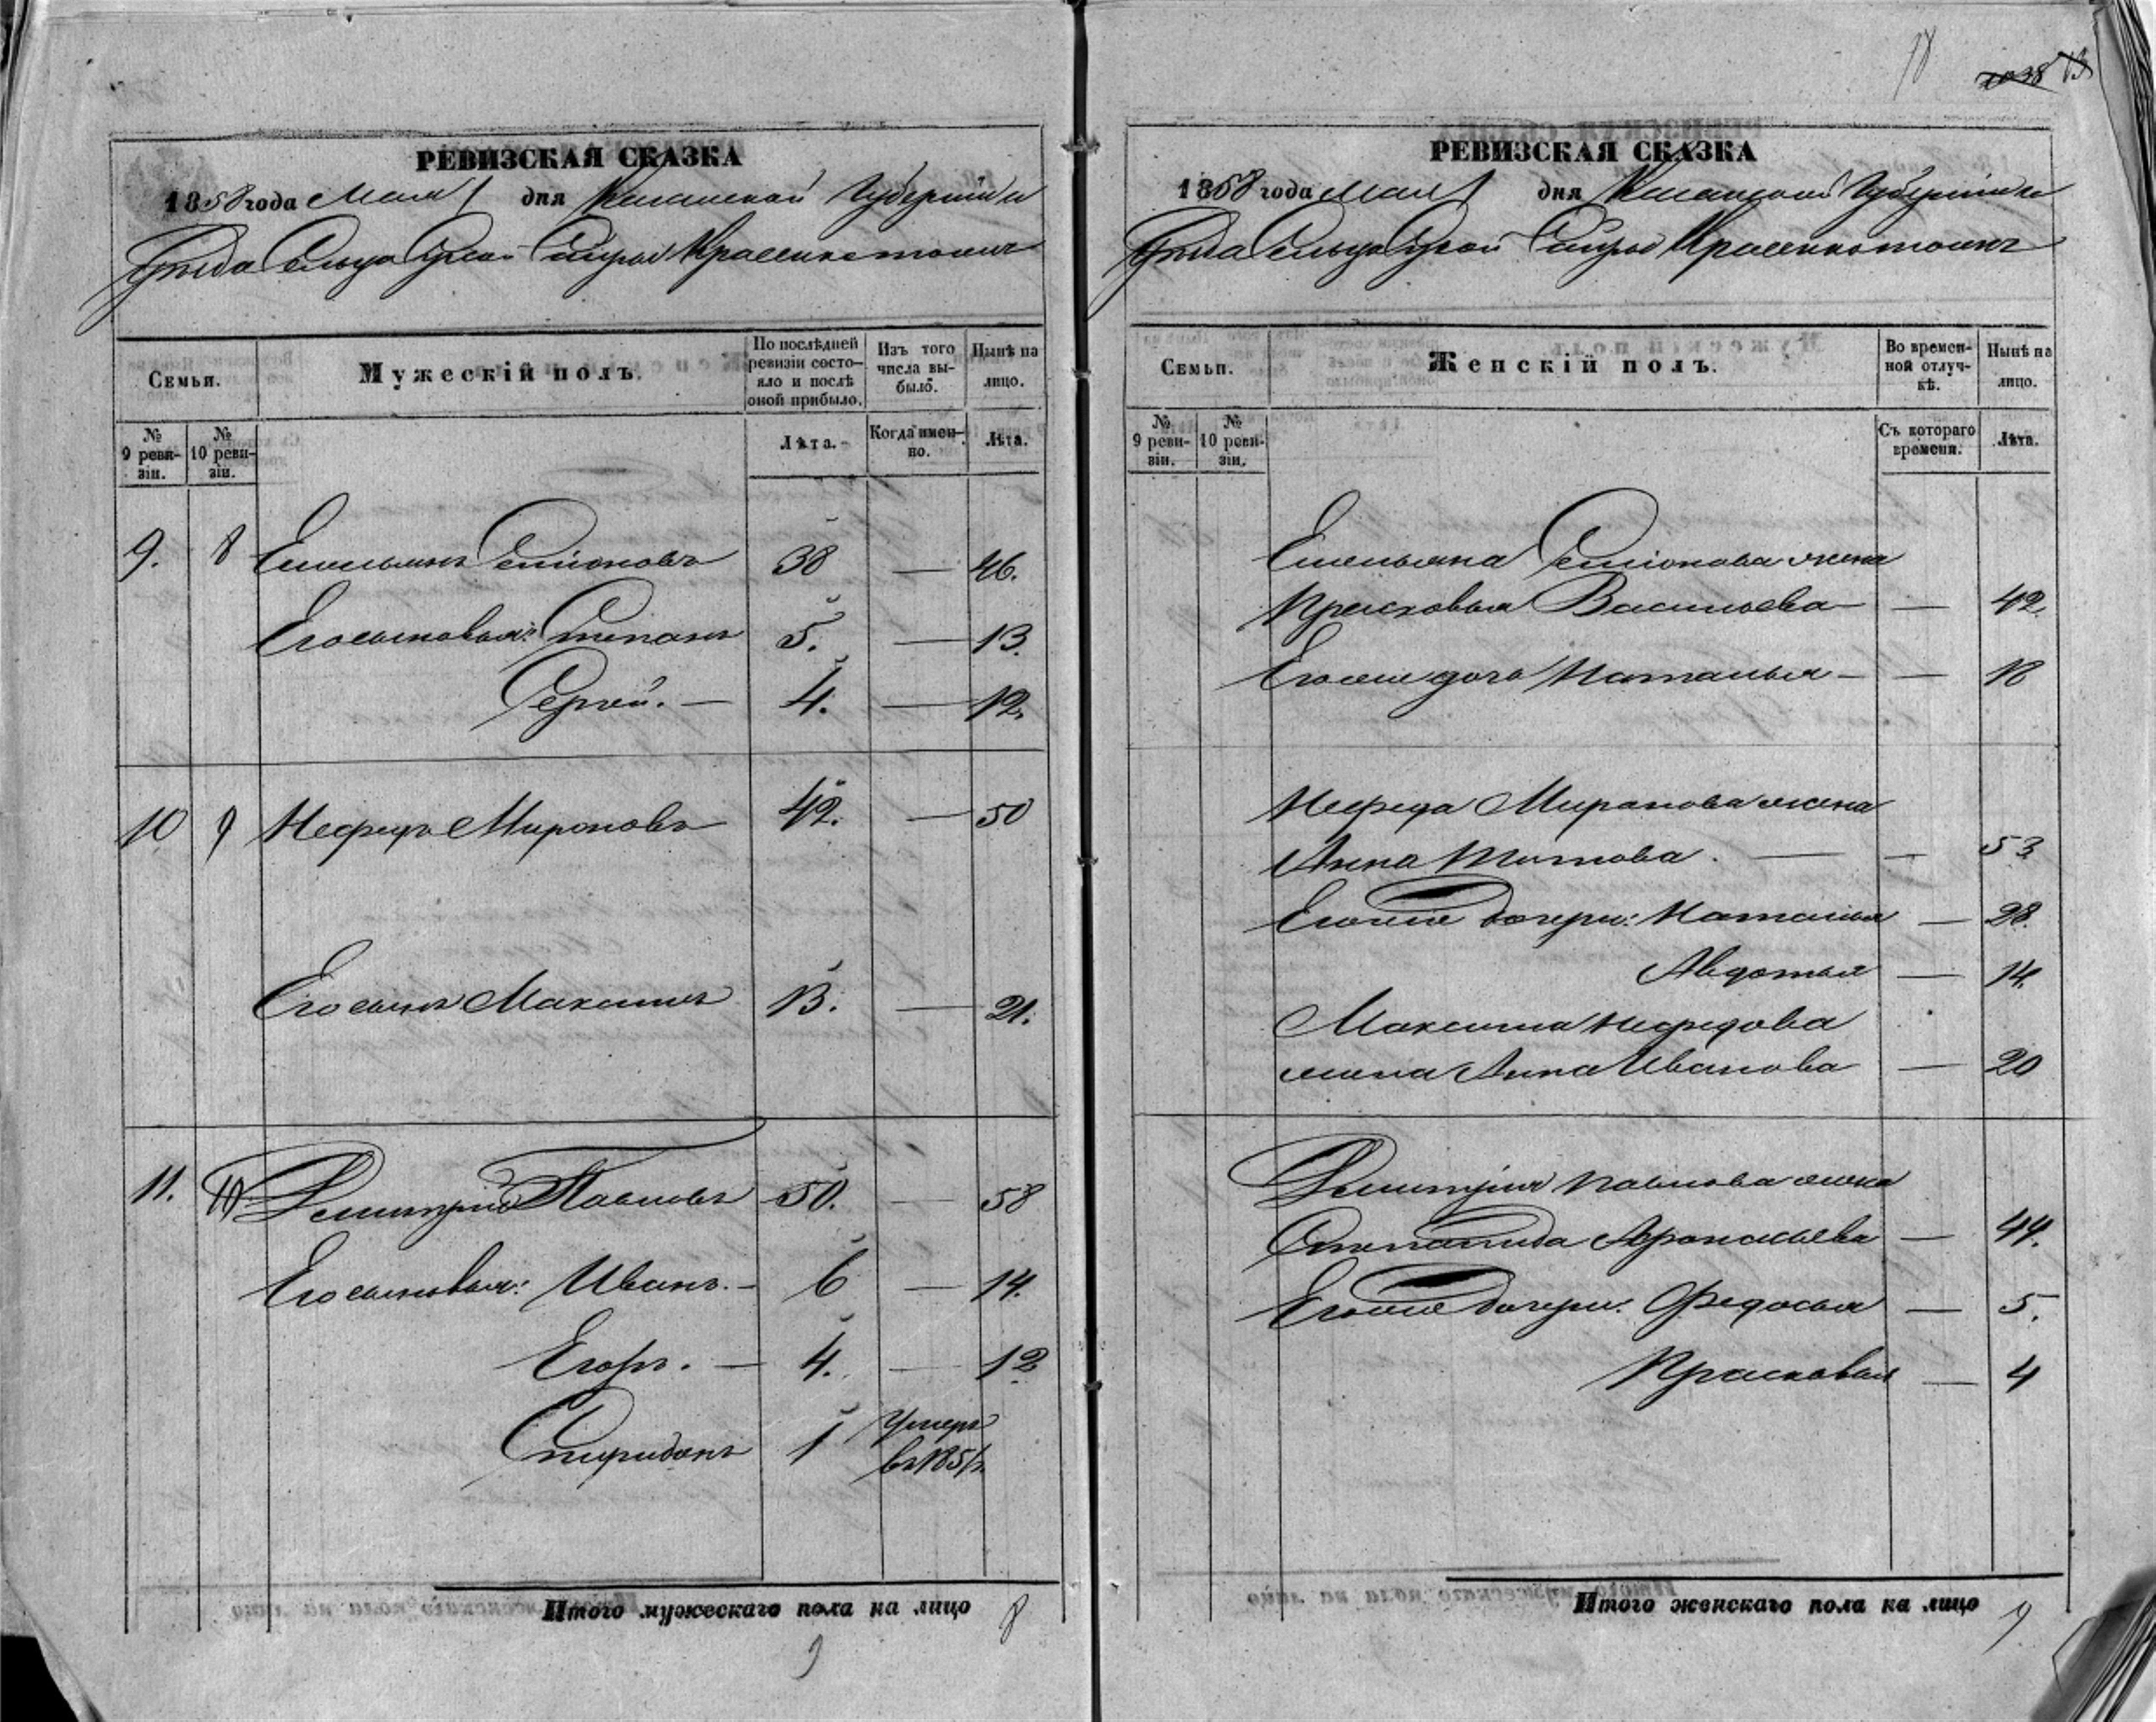 18
РЕВИЗСКАЯ СКАЗКА
1858 года Мая 1 дня Казанской Губернiи
Уѣзда Сельца
Семьи.
Мужескiй полъ.
По послѣдней ревизiи состояло и послѣ оной прибыло.
Изъ того числа выбыло.
Нынѣ на лицо.
№ 9 ревизiи.
№ 10 ревизiи.
Лѣта.
Когда именно.
Лѣта.
9. 8 Емельянъ Семiоновъ 38 — 46.
Его сыновья: Степанъ 5. — 13.
Сергей. — 4. — 12.
10 9 Нефедъ Мироновъ 42. — 50
Его сынъ Максимъ 13. — 21.
11. 10 Димитрiй Павловъ 50. — 58
Его сыновья: Иванъ. — 6 — 14.
Егоръ. — 4. — 12
Спиридонъ 1 Умеръ
въ 185
Итого мужескаго пола на лицо 8
9
РЕВИЗСКАЯ СКАЗКА
1858 года Мая 1 дня Казанской Губернiи
Уѣзда Сельца
Семьи.
Женскiй полъ.
Во временной отлучкѣ.
Нынѣ на лицо.
№ 9 ревизiи.
№ 10 ревизiи.
Съ котораго времени.
Лѣта.
Емельяна Семiонова жена
Прасковья Васильева — 42.
Его же дочь Наталья — — 18
Нефеда Миронова жена
Анна Титова. — — 53
Его же дочери: Наталья — 28.
Авдотья — 14.
Максима Нефедова
жена Анна Иванова — 20
Димитрiя Павлова жена
Степанида Афонасьева — 44.
Его же дочери: Федосья — 5.
Прасковья — 4
Итого женскаго пола на лицо 9